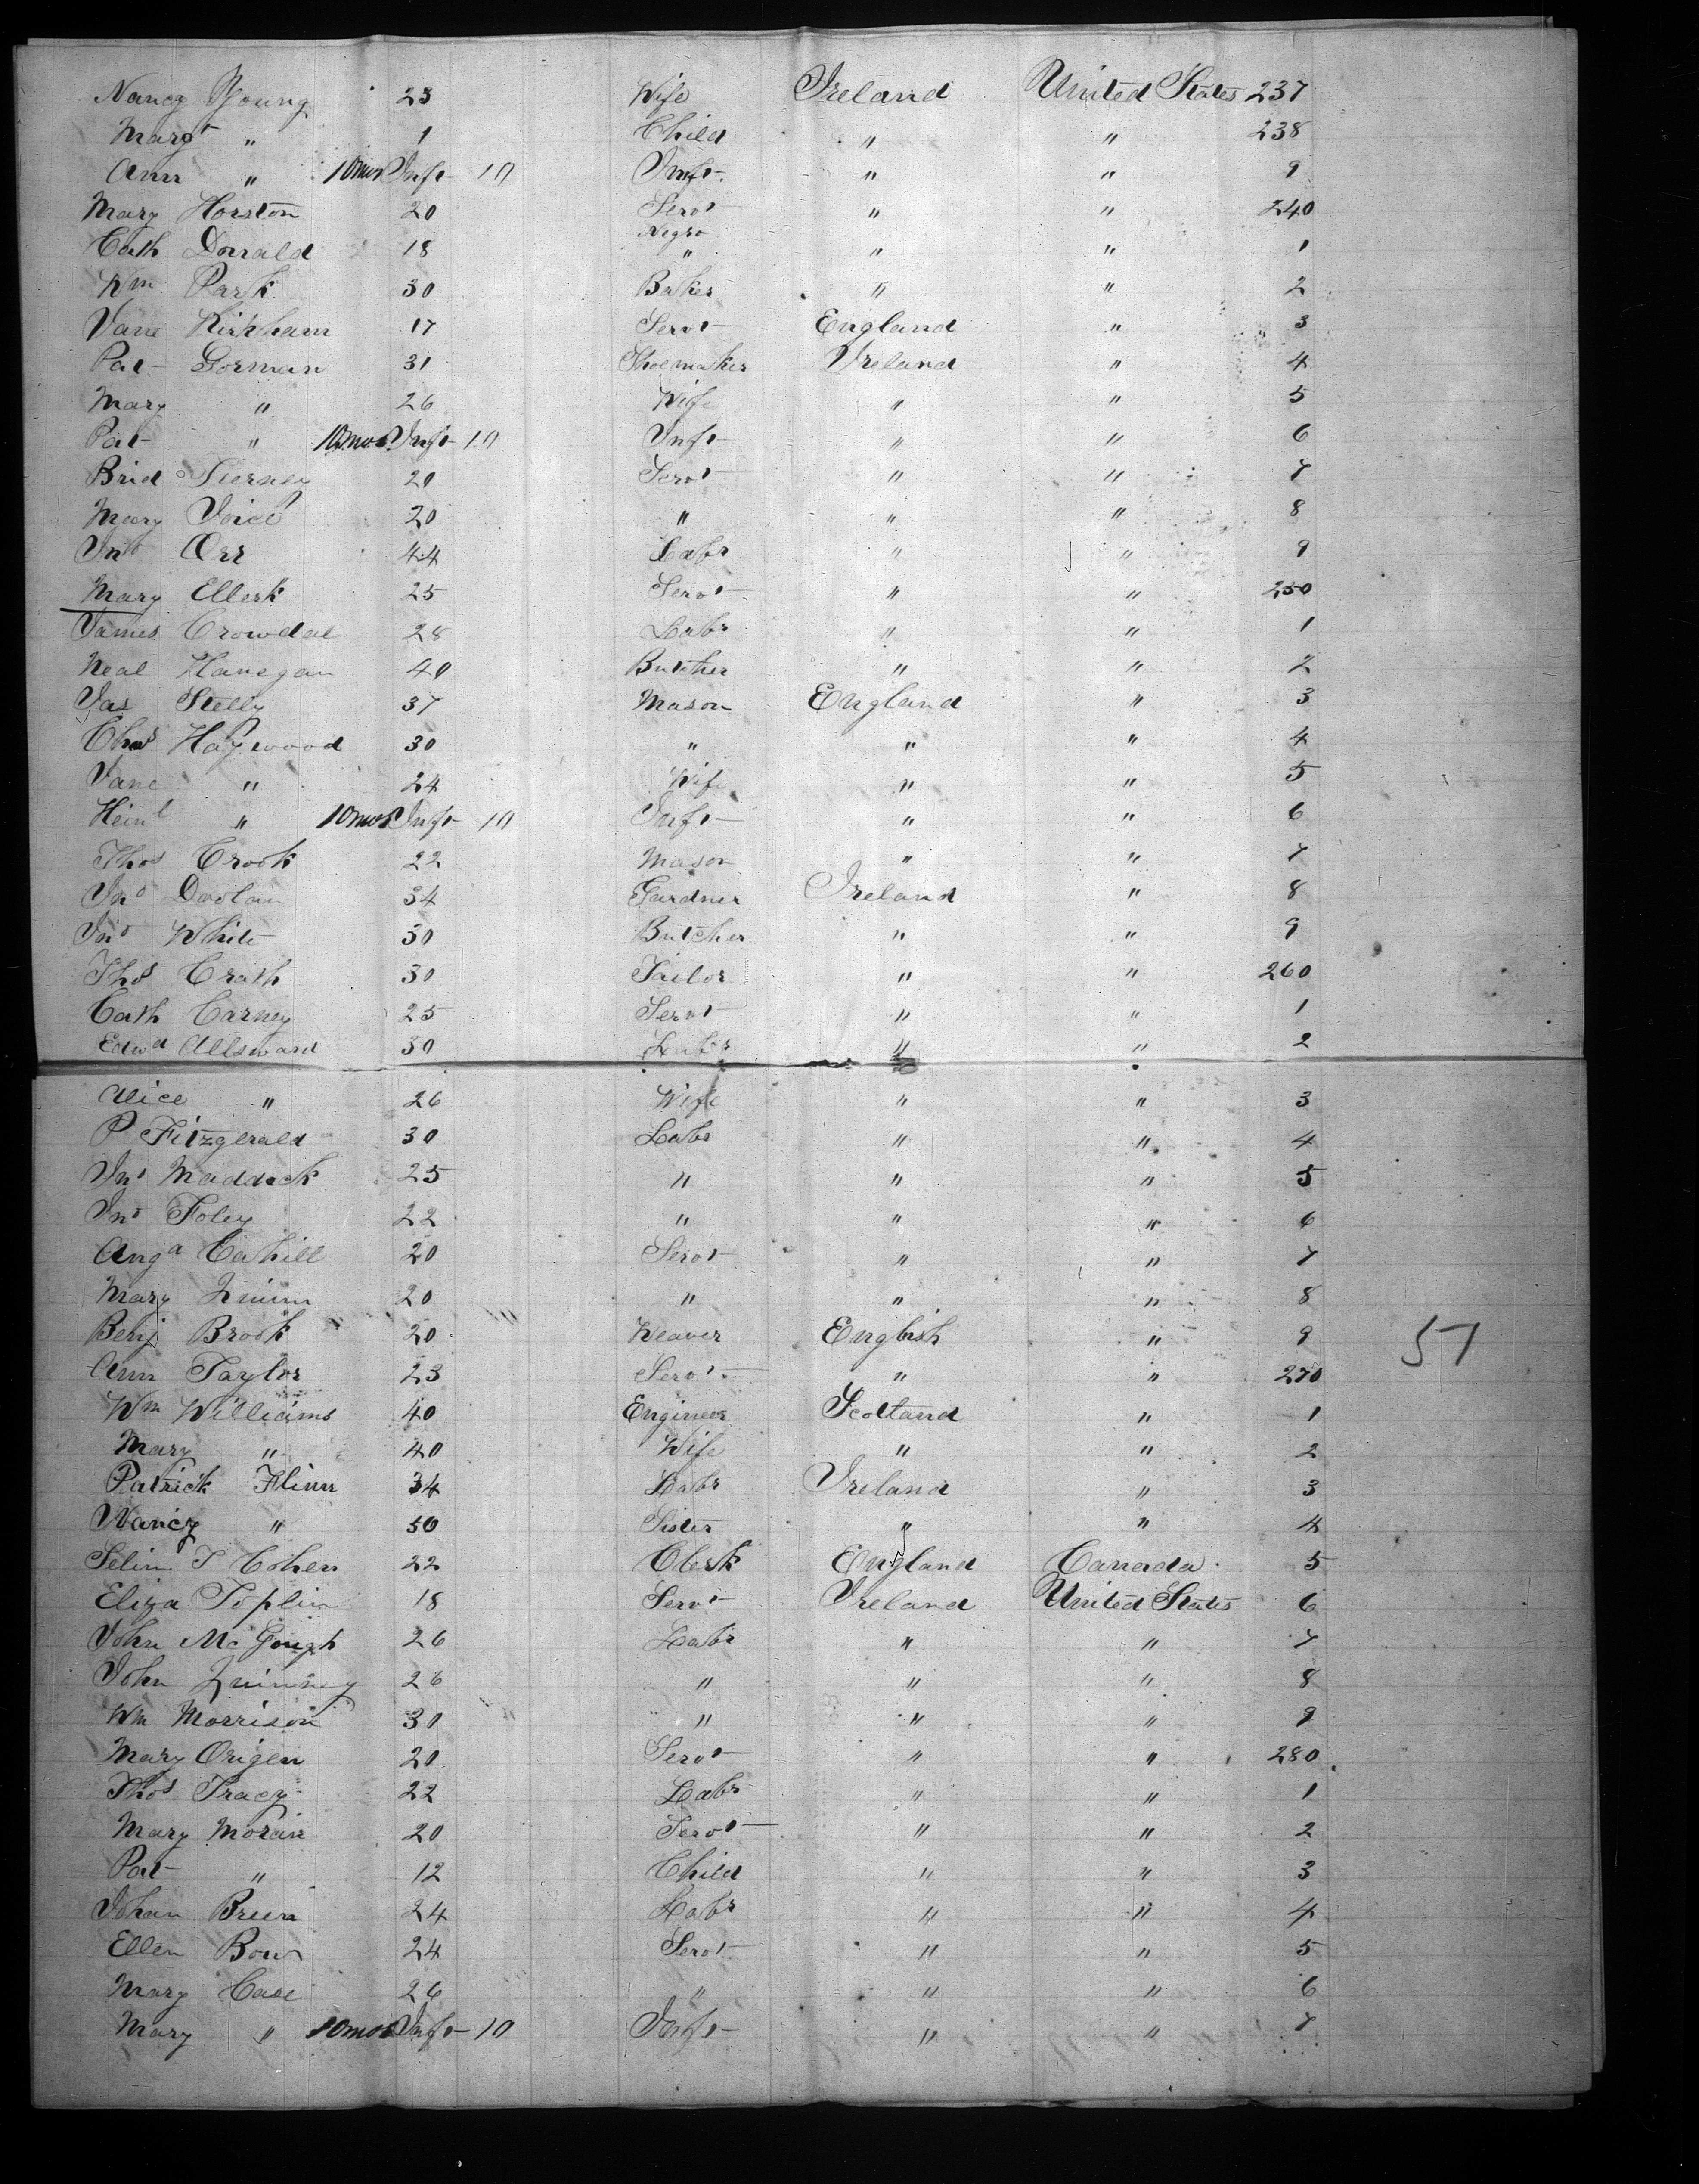 Nancy Young 23 Wife Ireland United States 237
Margt " 1 Child " " 238
Ann " 10mos Inft 10 Inft " " 9
Mary Horston 20 Servt " " 240
Negro
Cath Donald 18 " " " 1
Wm Park 30 Baker " " 2
Jane Kirkham 17 Servt England " 3
Pat Gorman 31 Shoemaker Ireland " 4
Mary " 26 Wife " " 5
Pat " 10mos Inft 10 Inft " " 6
Brid Tierney 20 Servt " " 7
Mary Joice 20 " " " 8
Jno Orr 44 Labr " " 9
Mary Ellerk 25 Servt " " 250
James Crowdal 28 Labr " " 1
Neal Hanegan 40 Butcher " " 2
Jas Stelly 37 Mason England " 3
Chas Haywood 30 " " " 4
Jane " 24 Wife " " 5
" 10mos Inft 10 Inft " " 6
Thos Crook 22 Mason " " 7
Jno Doolan 34 Gardner Ireland " 8
Jno White 30 Butcher " " 9
Thos Crath 30 Tailor " " 260
Cath Carney 25 Servt " " 1
Edwd Allsward 30 Labr " " 2
Alice " 26 Wife " " 3
P Fitzgerald 30 Labr " " 4
Jno Maddock 25 " " " 5
Jno Foley 22 " " " 6
Anga Cahill 20 Servt " " 7
Mary Quinn 20 " " " 8
Benj Brook 20 Weaver English " 9 57
Ann Taylor 23 Servt " " 270
Wm Williams 40 Engineer Scotland " 1
Mary " 40 Wife " " 2
Patrick Flinn 34 Labr Ireland " 3
Nancy " 30 Sister " " 4
Selim S Cohen 22 Clerk England Canada 5
Eliza Toplin 18 Servt Ireland United States 6
John McGough 26 Labr " " 7
John Quinney 26 " " " 8
Wm Morrison 30 " " " 9
Mary Origen 20 Servt " " 280
Thos Tracy 22 Labr " " 1
Mary Moran 20 Servt " " 2
Pat " 12 Child " " 3
Johan Breen 24 Labr " " 4
Ellen Bow 24 Servt " " 5
Mary Case 26 " " " 6
Mary " 10mos Inft 10 Inft " " 7